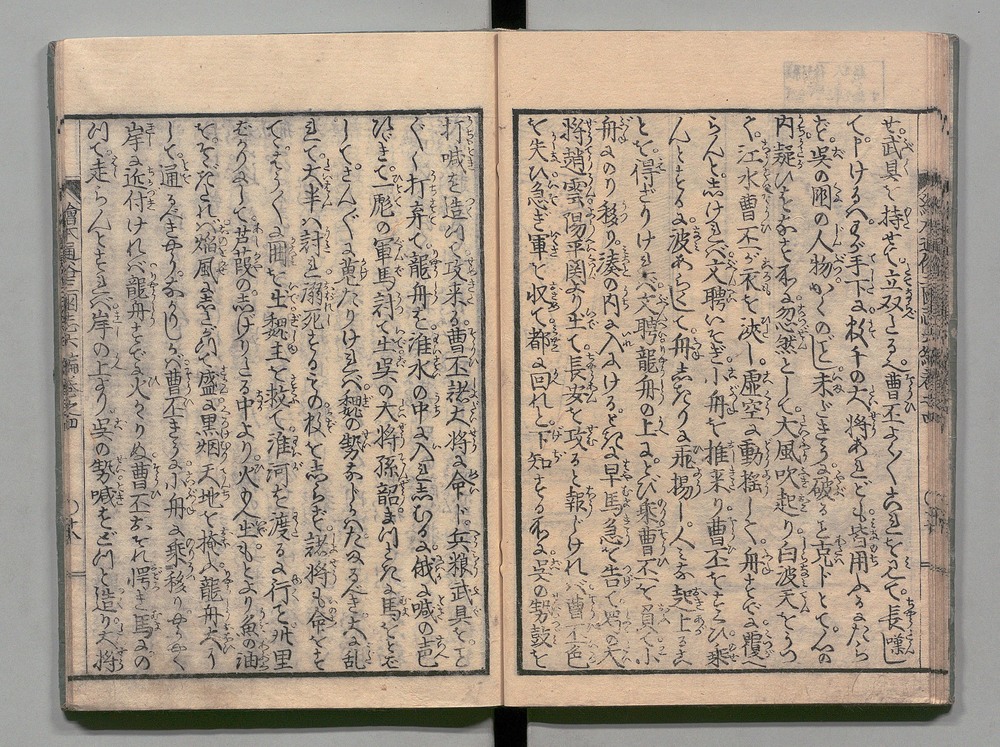 せ武具を持せて立双たる人曹丕よく〳〵これを見て長嘆し
て申けるハ我手下に数千の大将あれども皆用ふるにたら
ず呉の國の人物かくのごとし未だきうに破ること克じとて心の
内疑ひをなす所に忽然として大風吹起り白波天をうつ
て江水曹丕が衣を浹し虚空に動揺して舟すでに覆へ
らんとしけれバ文聘いそぎ小舟を推来り曹丕をすくひ乗
んとするに波あらくして舟しきりに乖揚し人みな起上ること
を得ざりけれバ文聘龍舟の上にとび乗曹丕を負て小
舟にのり移り湊の内に入けるとき早馬急を告て蜀の大
将趙雲陽平関より出て長安を攻ると報じけれバ曹丕色
を失ひ急ぎ軍を収て都に回れと下知する所に呉の勢鼓を
打喊を造つて攻来る曹丕諸大将に命じ兵粮武具をこと
〴〵く打弃て龍舟を淮水の中に入れしむるに俄に喊の声
ひゞき一彪の軍馬討て出呉の大将孫韶まつさきに馬をとば
してさん〴〵に蒐たりけれバ魏の勢なじかハたまるべき大に乱
れて大半ハ討れ溺死するもの数をしらず諸将も命をす
てゝやう〳〵に囲を出魏主を救て淮河を渡るに行こと卅里
ばかりにして芦葭のしげりたる中より火もえ出もとより魚の油
をそゝぎたれハ焔風にしたがつて盛に黒烟天地を掩ハ龍舟大う
して通るべきやうなかりしかバ曹丕きうに小舟に乗移りやう〳〵
岸に近付けれバ龍舟すでに火かゝりぬ曹丕おそれ愕き馬にの
つて走らんとすれバ岸の上より呉の勢喊をどつと造り大将
繪本通俗三國志六編巻之四